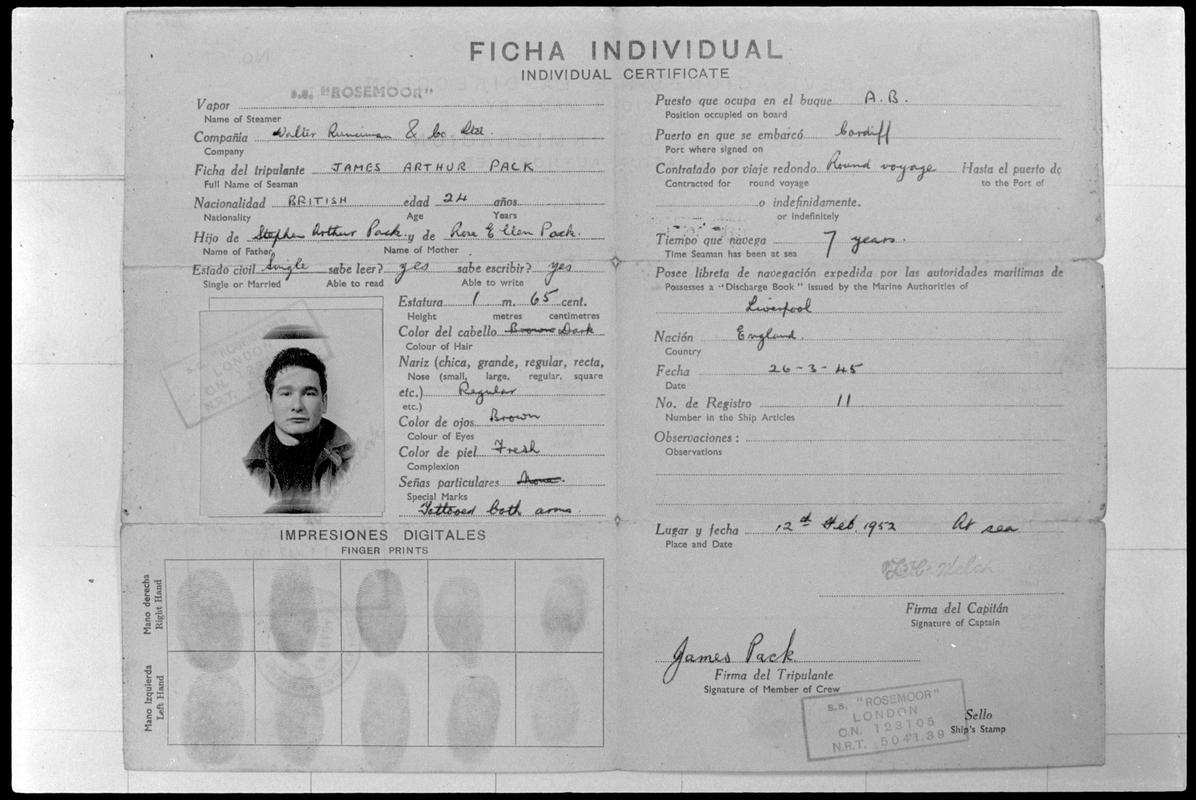 FICHA INDIVIDUAL
INDIVIDUAL CERTIFICATE
Vapor s.s. "ROSEMOOR"
Name of Steamer
Compañia Walter Runciman & Co. Ltd.
Company
Ficha del tripulante JAMES ARTHUR PACK
Full Name of Seaman
Nacionalidad BRITISH edad 24 años
Nationality Age Years
Hijo de Stephen Arthur Pack y de Rose Ellen Pack.
Name of Father Name of Mother
Estado civil Single sabe leer? yes sabe escribir? yes
Single or Married Able to read Able to write
Estatura 1 m. 65 cent.
Height metres centimetres
Color del cabello Brown Dark
Colour of Hair
Nariz (chica, grande, regular, recta,
Nose (small, large, regular, square
etc.) Regular
etc.)
Color de ojos Brown
Colour of Eyes
Color de piel Fresh
Complexion
Señas particulares None.
Special Marks
Tattooed both arms.
S.S. "ROSEMOOR"
LONDON
O.N.
N.R.T.
IMPRESIONES DIGITALES
FINGER PRINTS
Mano derecha
Right Hand
Mano Izquierda
Left Hand
Puesto que ocupa en el buque A.B.
Position occupied on board
Puerto en que se embarcó Cardiff
Port where signed on
Contratado por viaje redondo Round voyage Hasta el puerto de
Contracted for round voyage to the Port of
o indefinidamente.
or Indefinitely
Tiempo que navega 7 years.
Time Seaman has been at sea
Posee libreta de navegación expedida por las autoridades marítimas de
Possesses a "Discharge Book" issued by the Marine Authorities of
Liverpool
Nación England.
Country
Fecha 26-3-45
Date
No. de Registro 11
Number in the Ship Articles
Observaciones :
Observations
Lugar y fecha 12th Feb. 1952 At sea
Place and Date
Welch
Firma del Capitán
Signature of Captain
James Pack
Firma del Tripulante
Signature of Member of Crew
S.S. "ROSEMOOR"
LONDON
O.N. 123105
N.R.T. 5041.39
Sello
Ship's Stamp